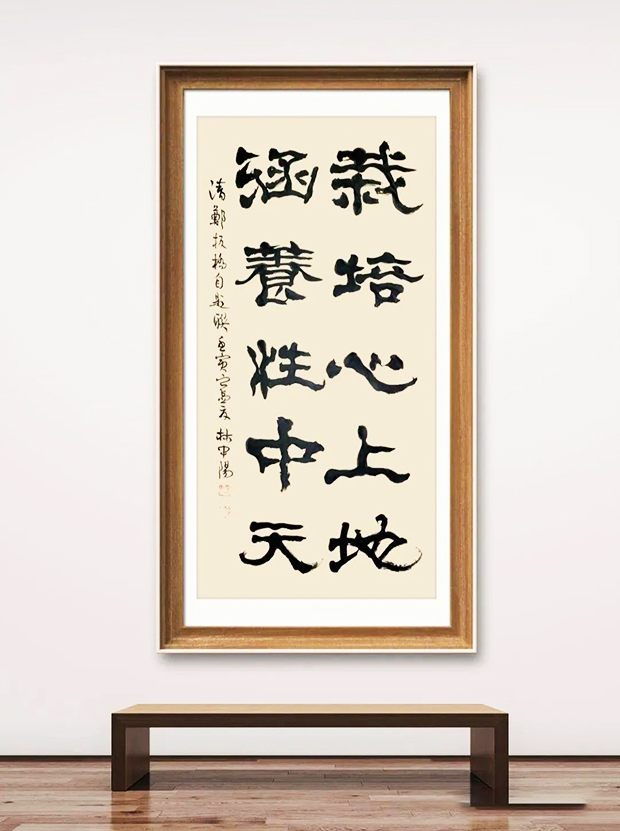 栽培心上地
涵養性中天
清鄭板橋自題聯壬寅立夏 林中陽